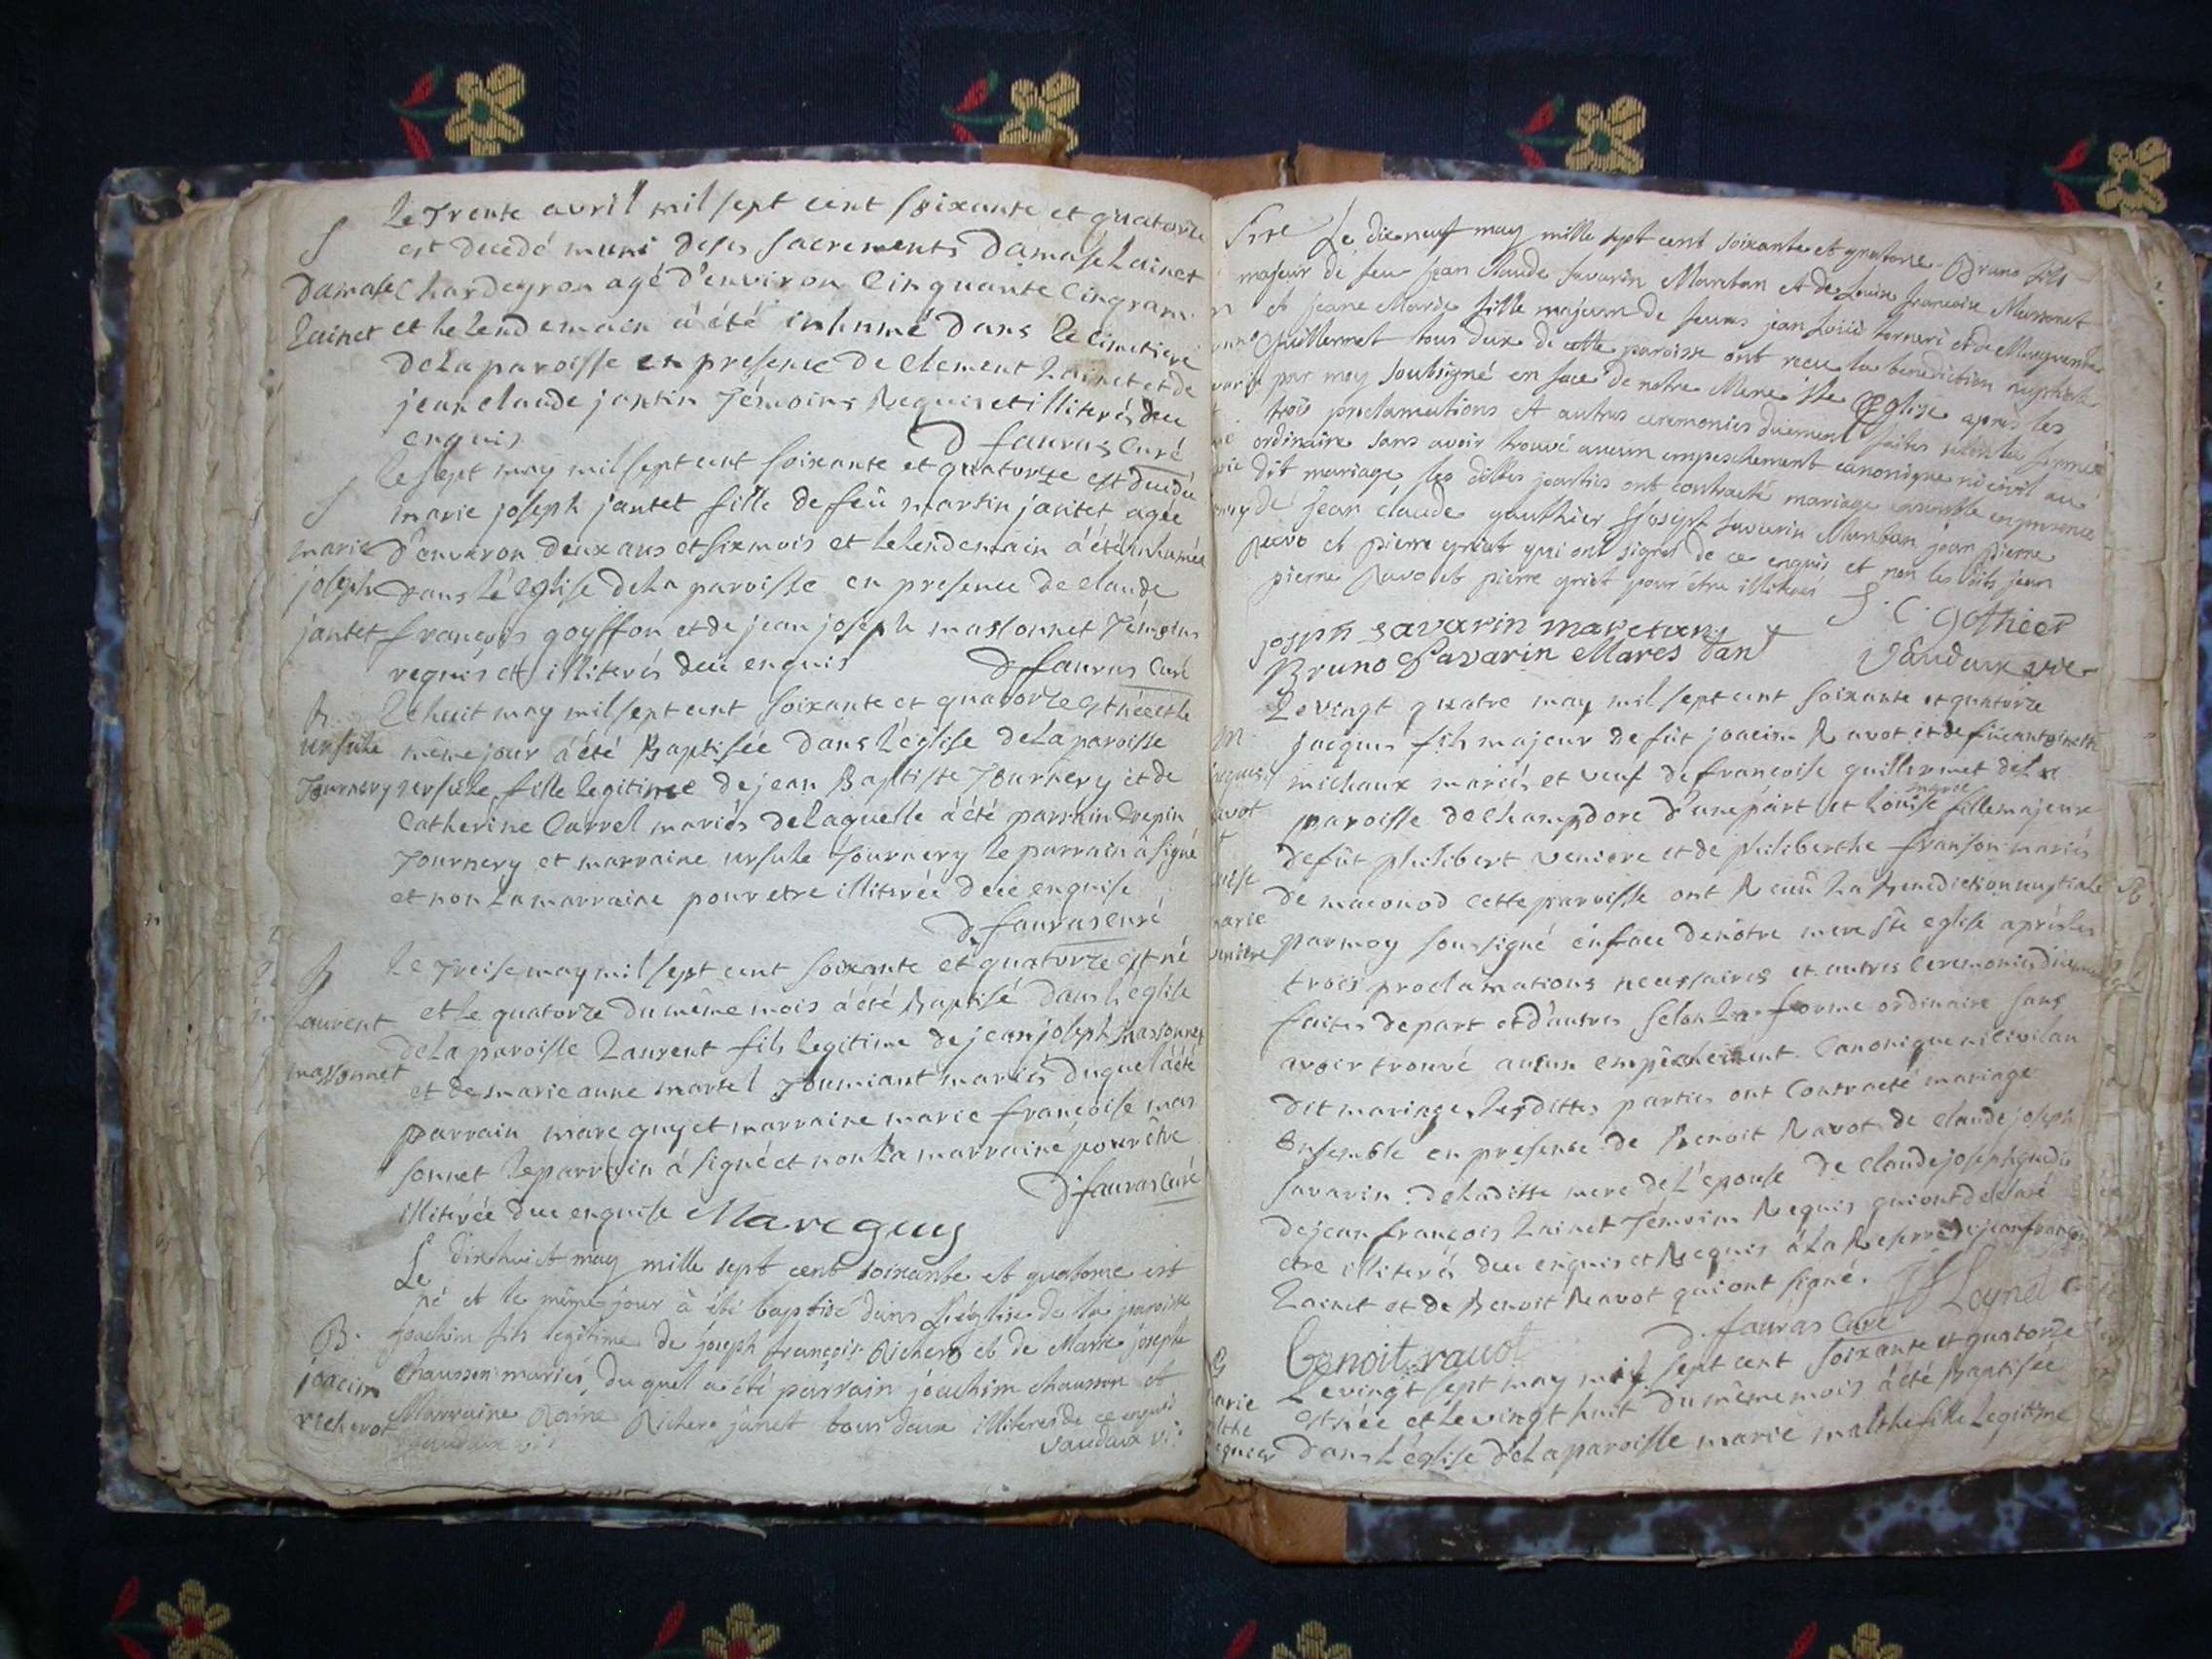 Le Trente avril mil sept cent soixante et quatorze
S
est decedé muni de ses sacrements Damase Lainet
Damase
Chardeyron agé d'environ Cinquante Cinq ans
Lainet
et le lendemain à été inhumé dans le Cimetiere
de la paroisse en presence de Clement Lainet et de
jean claude jantin Témoins Requis et illiterés due
enquis
D fauras Curé
le sept may mil sept cent soixante et quatorze est decedée
S
marie joseph jantet fille de feû martin jantet agée
marie
d'environ deux ans et six mois et le lendemain à été inhumée
joseph
dans l'église de la paroisse en presence de claude
jantet
françois goyffon et de jean joseph massonnet Témoins
requis et illiterés due enquis
D fauras Curé
B.
Le huit may mil sept cent soixante et quatorze est née et le
ursule
même jour à été Baptisée dans l'église de la paroisse
Tournery
ursule fille legitime de jean Baptiste Tournery et de
Catherine Carrel mariés de laquelle à été parrain Crepin
Tournery et marraine ursule Tournery le parrain à signé
et non la marraine pour etre illiterée due enquise
D. fauras curé
B
Le Treise may mil sept cent soixante et quatorze est né
Laurent
et le quatorze du même mois à été Baptisé dans l'église
massonnet
de la paroisse Laurent fils legitime de jean joseph massonnet
et de marie anne martel mariés duquel à été
parrain marc guy et marraine marie françoise mas
sonnet le parrain à signé et non la marraine pour être
illiterée due enquise
Marc guy
D. fauras Curé
Le dixhuict may mille sept cent soixante et quatorze est
né et le même jour à été baptisé dans l'église de la paroisse
B.
joachim fils legitime de joseph françois Richero et de Marie joseph
joacim
chausson mariés, du quel a été parrain joachim chausson et
richerot
Marraine Richero janet tous deux illiterés de ce enquis
vaudaux vi:
Le dixneuf may mille sept cent soixante et quatorze Bruno fils
majeur de feu jean claude savarin Maretan et de Louise francoise Massonet
et jeane Marie fille majeure de feus jean Loüis torneri et de Marguerite
Guillermet tous deux de cette paroisse ont receu la benediction nuptiale
par moy soubsigné en face de notre Mere Ste Eglise apres les
trois proclamations et autres ceremonies düement faites selon la forme
ordinaire sans avoir trouvé aucun empeschement canonique ni civil au
dit mariage les dittes parties ont contracté mariage ensemble en presence
de jean claude gauthier joseph savarin Maretan jean pierre
Ravo et pierre griot qui ont signés de ce enquis et non les dits jean
pierre Ravo et pierre griot pour être illiterés
joseph savarin maretan
J. C. gothier
Bruno Savarin Mares tan
Vaudaux vic.
Le vingt quatre may mil sept cent soixante et quatorze
M
jacques fils majeur de fût joacim Ravot et de füe antoinette
michaux mariés et veuf de françoise guillermet de la
ravot
marie
paroisse de Champdore d'une part et Louise fille majeure
de fût philibert veniere et de philiberthe franson mariés
de maconod cette paroisse ont Recuû la Benediction nuptiale
marie
par moy soussigné en face de nôtre mere Ste eglise après les
veniere
trois proclamations necessaires et autres Ceremonies düement
faites de part et d'autres selon la forme ordinaire sans
avoir trouvé aucun empêchement Canonique ni civil au
dit mariage, lesdittes parties ont Contracté mariage
Ensemble en presence de Benoit Ravot de claude joseph
savarin de laditte mere de l'epouse de claude joseph
de jean françois Lainet Temoins Requis qui ont declaré
etre illiterés due enquis et Requis à la Reserve de jean françois
Lainet et de Benoit Ravot qui ont signé.
J f Leynet
Benoit ravot
D. fauras Curé
B
Le vingt sept may mil sept cent soixante et quatorze
marie
est née et le vingt huit du même mois à été Baptisée
dans l'église de la paroisse marie malthe fille legitime